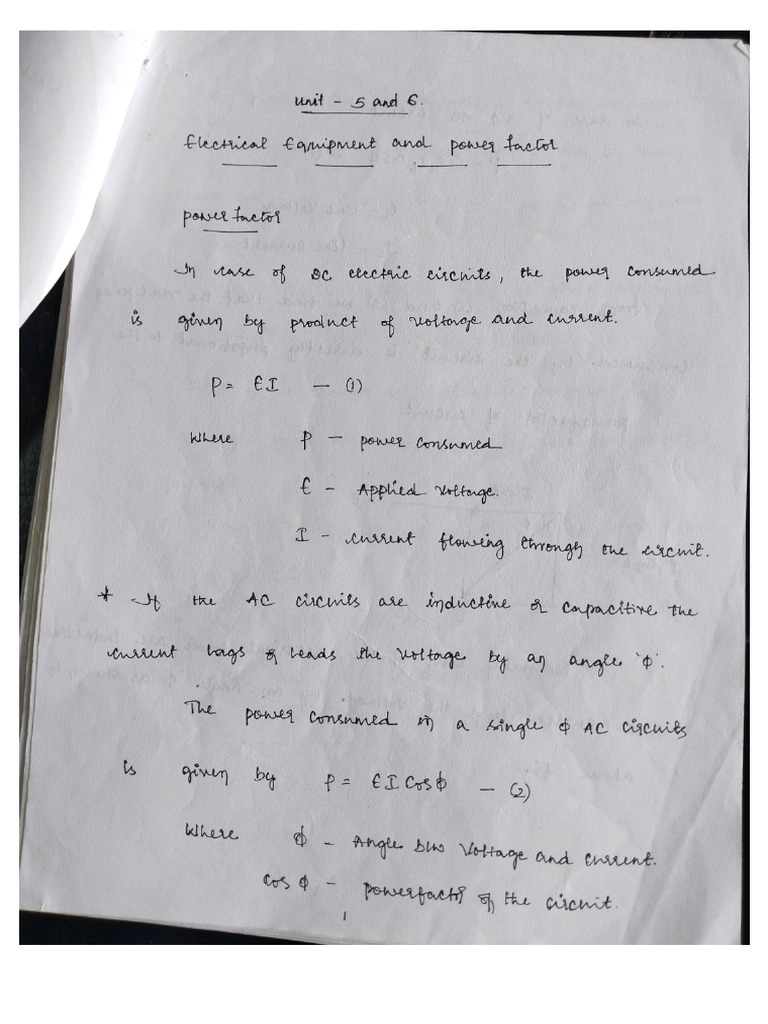 Unit - 5 and 6.
Electrical Equipment and power factor
power factor
In case of DC electric circuits, the power consumed
is given by product of voltage and current.
P = EI — (1)
Where P — power consumed
E - Applied voltage.
I - current flowing through the circuit.
* If the AC circuits are inductive or capacitive the
current lags or leads the voltage by an angle 'ϕ'.
The power consumed in a single ϕ AC circuits
is given by P = EI Cos ϕ — (2)
Where ϕ - Angle b/w voltage and current.
Cos ϕ - powerfactor of the circuit.